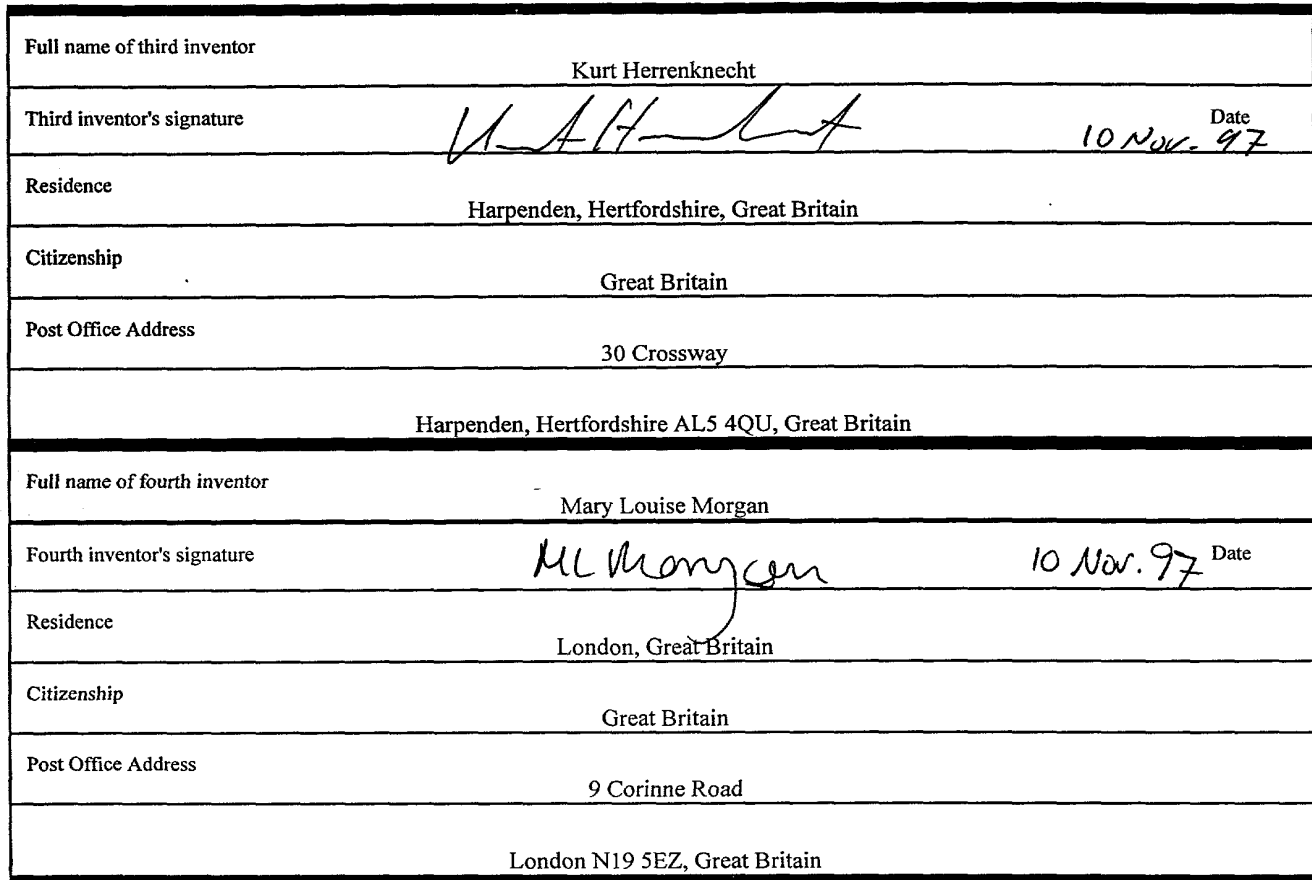 Full name of third inventor
Kurt Herrenknecht
Third inventor's signature
Date
10 Nov. 97
Residence
Harpenden, Hertfordshire, Great Britain
Citizenship
Great Britain
Post Office Address
30 Crossway
Harpenden, Hertfordshire AL5 4QU, Great Britain
Full name of fourth inventor
Mary Louise Morgan
Fourth inventor's signature ML Morgan 10 Nov. 97 Date
Residence
London, Great Britain
Citizenship
Great Britain
Post Office Address
9 Corinne Road
London N19 5EZ, Great Britain